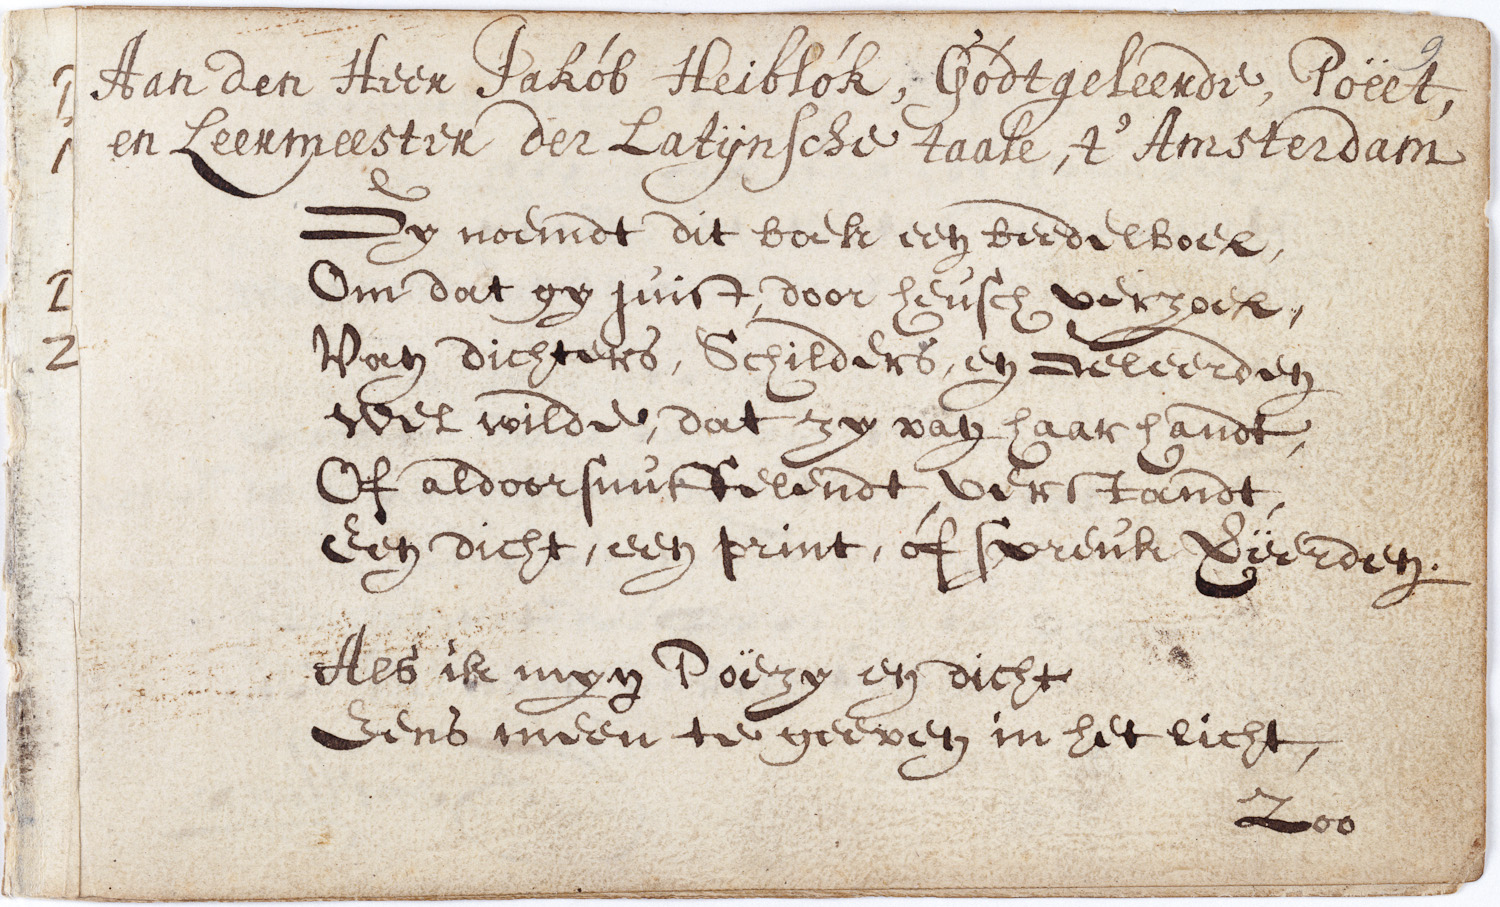 9
Aan den Heer Jakób Heiblók, Gódtgeleerde, Pöeet,
en Leermeester der Latijnsche taale, t' Amsterdam
Gy noemdt dit boek een beedelboek,
Om dat gy juist, door heusch verzoek,
Van dichters, Schilders, en Geleerden
Wel wilde, dat zy van haar handt,
Of aldoorsnuffelendt verstandt,
Een dicht, een print, óf spreuk
Als ik myn Poëzy en dicht
Eens meen te geeven in het licht,
Zoo